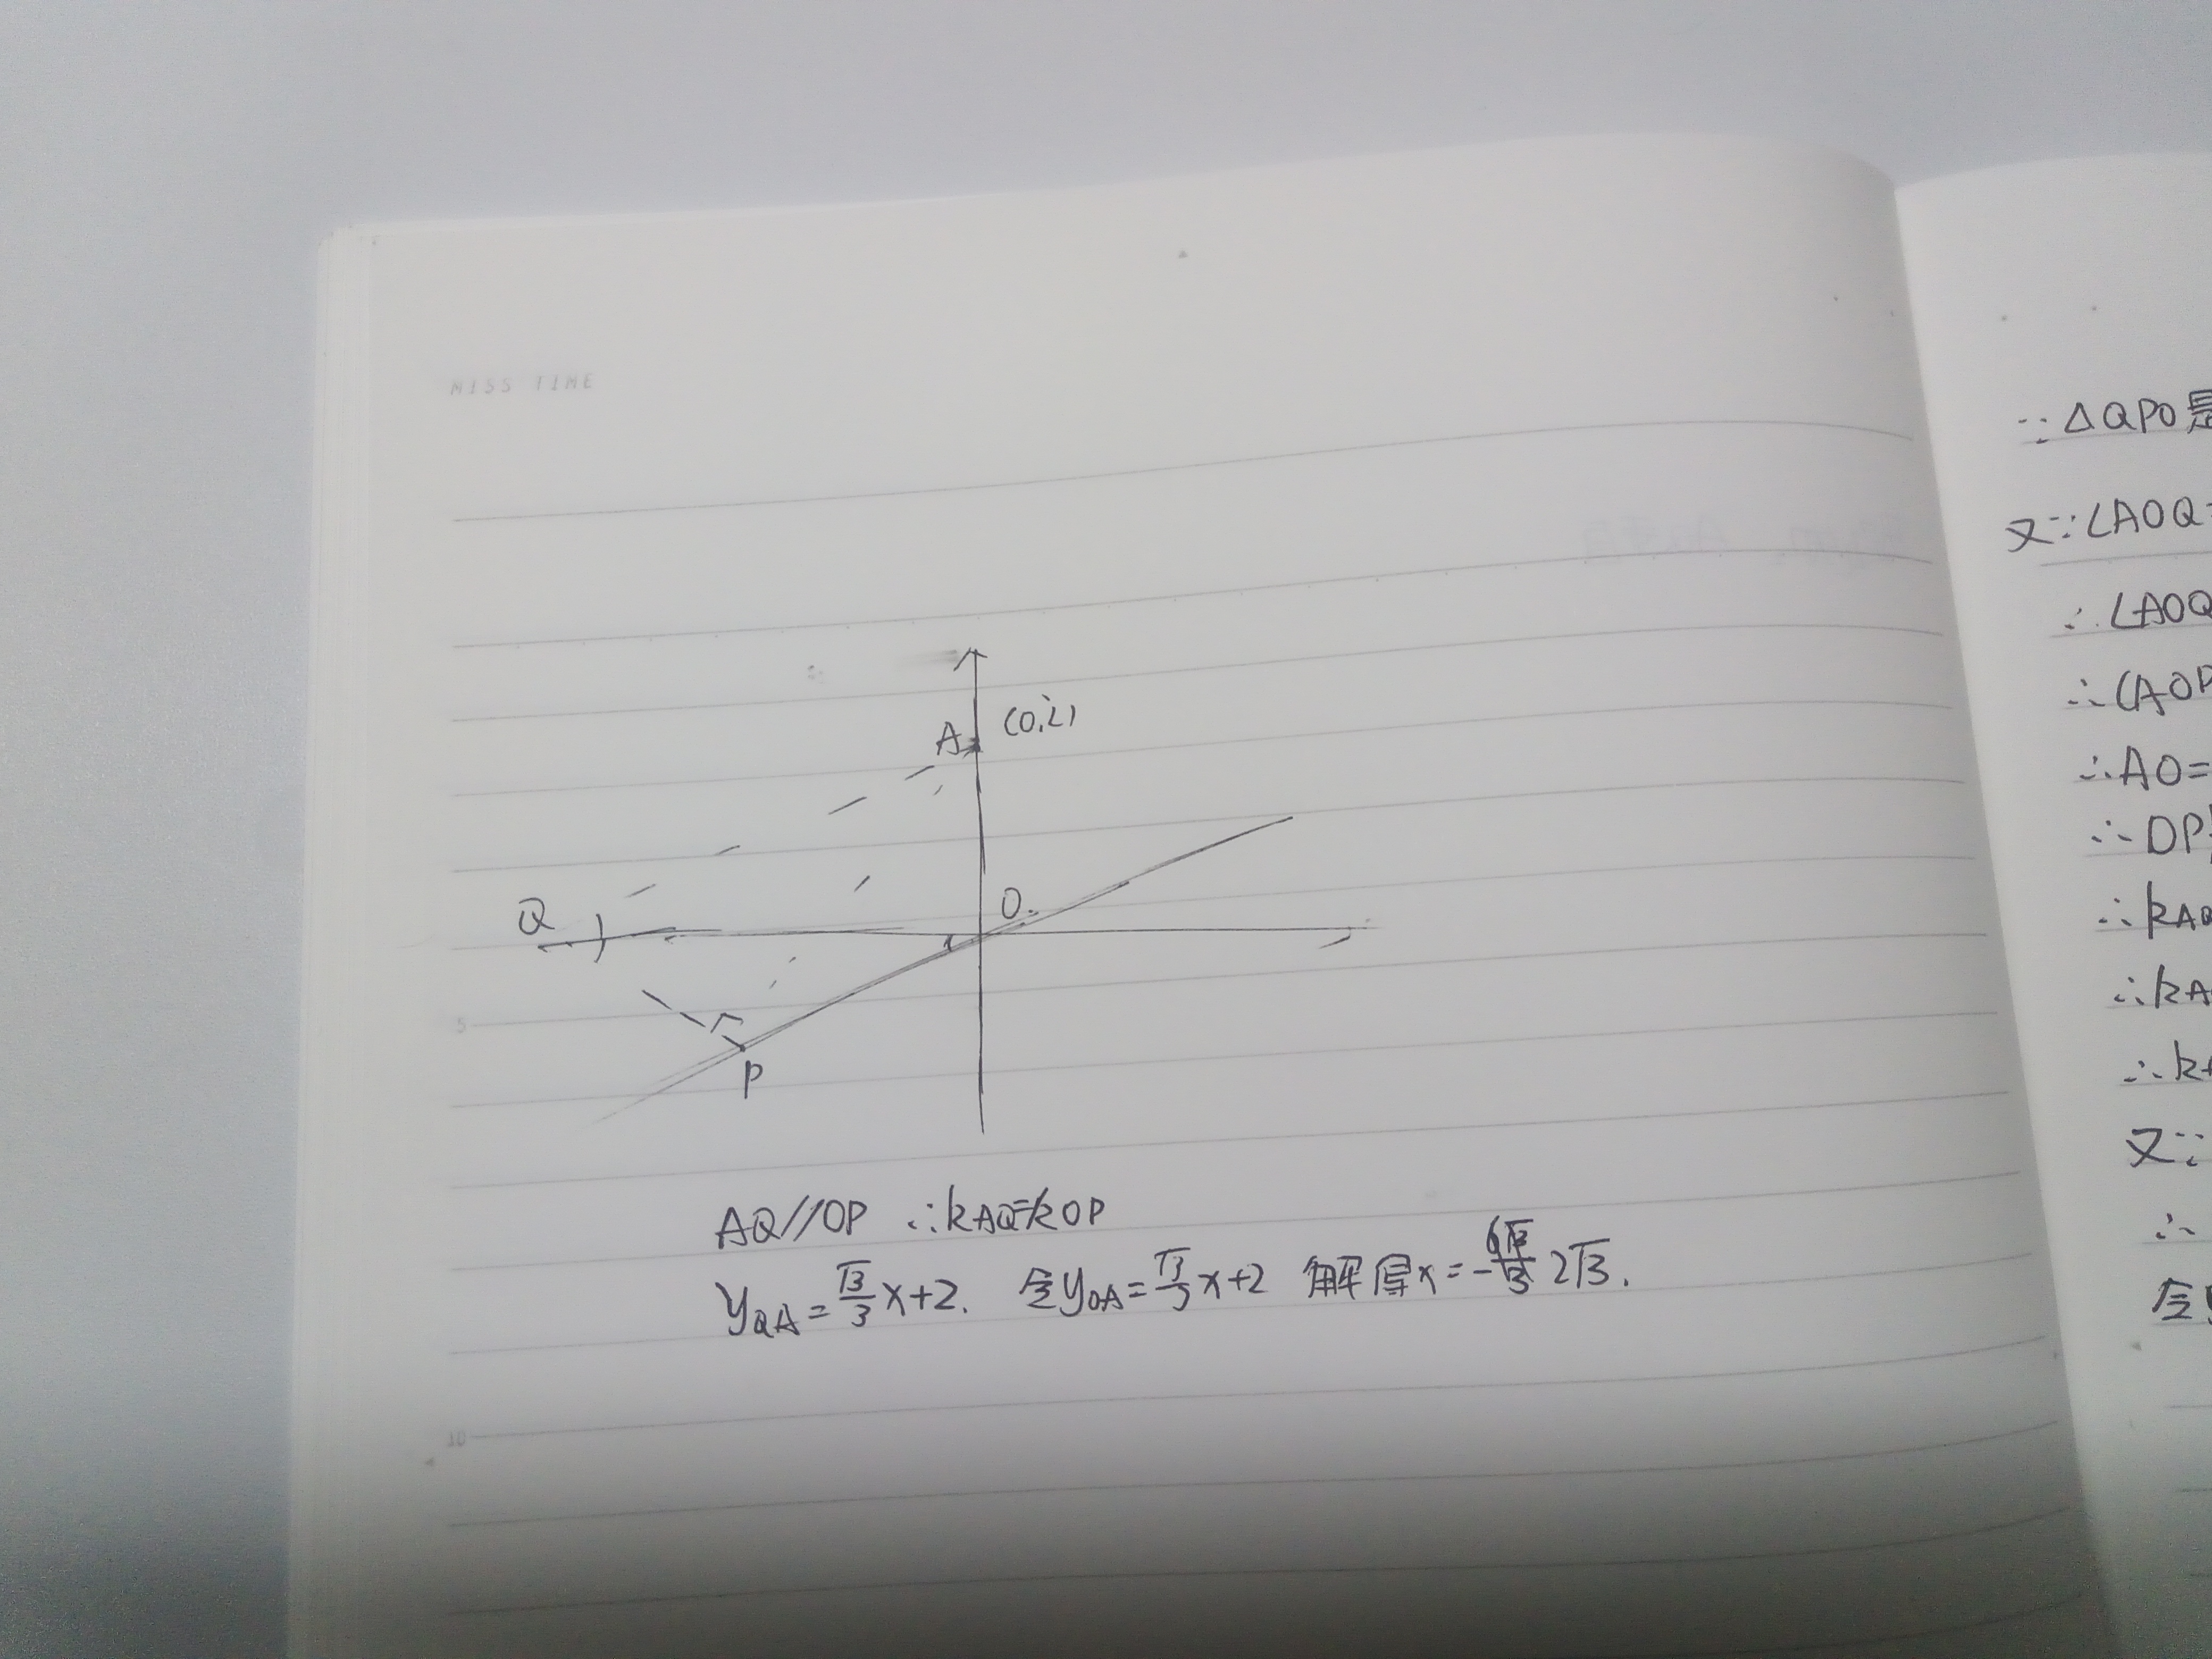 MISS TIME
A (0,2)
Q
O
P
5
AQ//OP ∴kAQ=kOP
yQA=√3/3x+2. 令yOA=√3/3x+2 解得x=-2√3.
10
∵△QPO是
又∵∠AOQ=
∴∠AOQ
∴∠AOP
∴AO=
∴OP
∴kAQ
∴kA
∴k
又∵
∴
令y